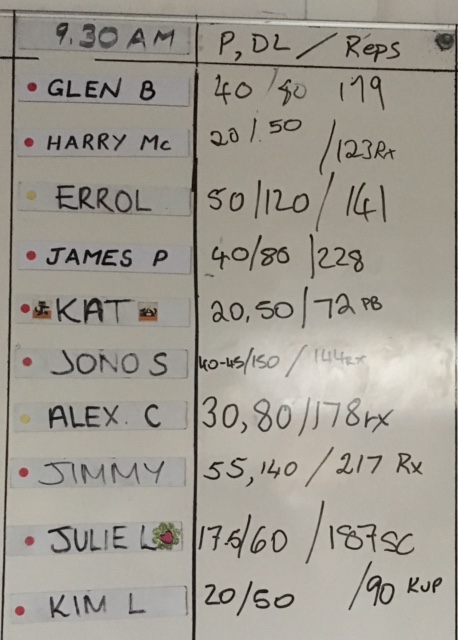 9.30 AM P, DL / Reps
GLEN B 40 / 80 179
HARRY Mc 20 / 50 / 123 Rx
ERROL 50/120 / 141
JAMES P 40/80 / 228
KAT 20,50 / 72 PB
JONO S 40-45/150 / 144 RX
ALEX. C 30,80 / 178 rx
JIMMY 55,140 / 217 Rx
JULIE L 17.5/60 / 187 SC
KIM L 20/50 / 90 KUP